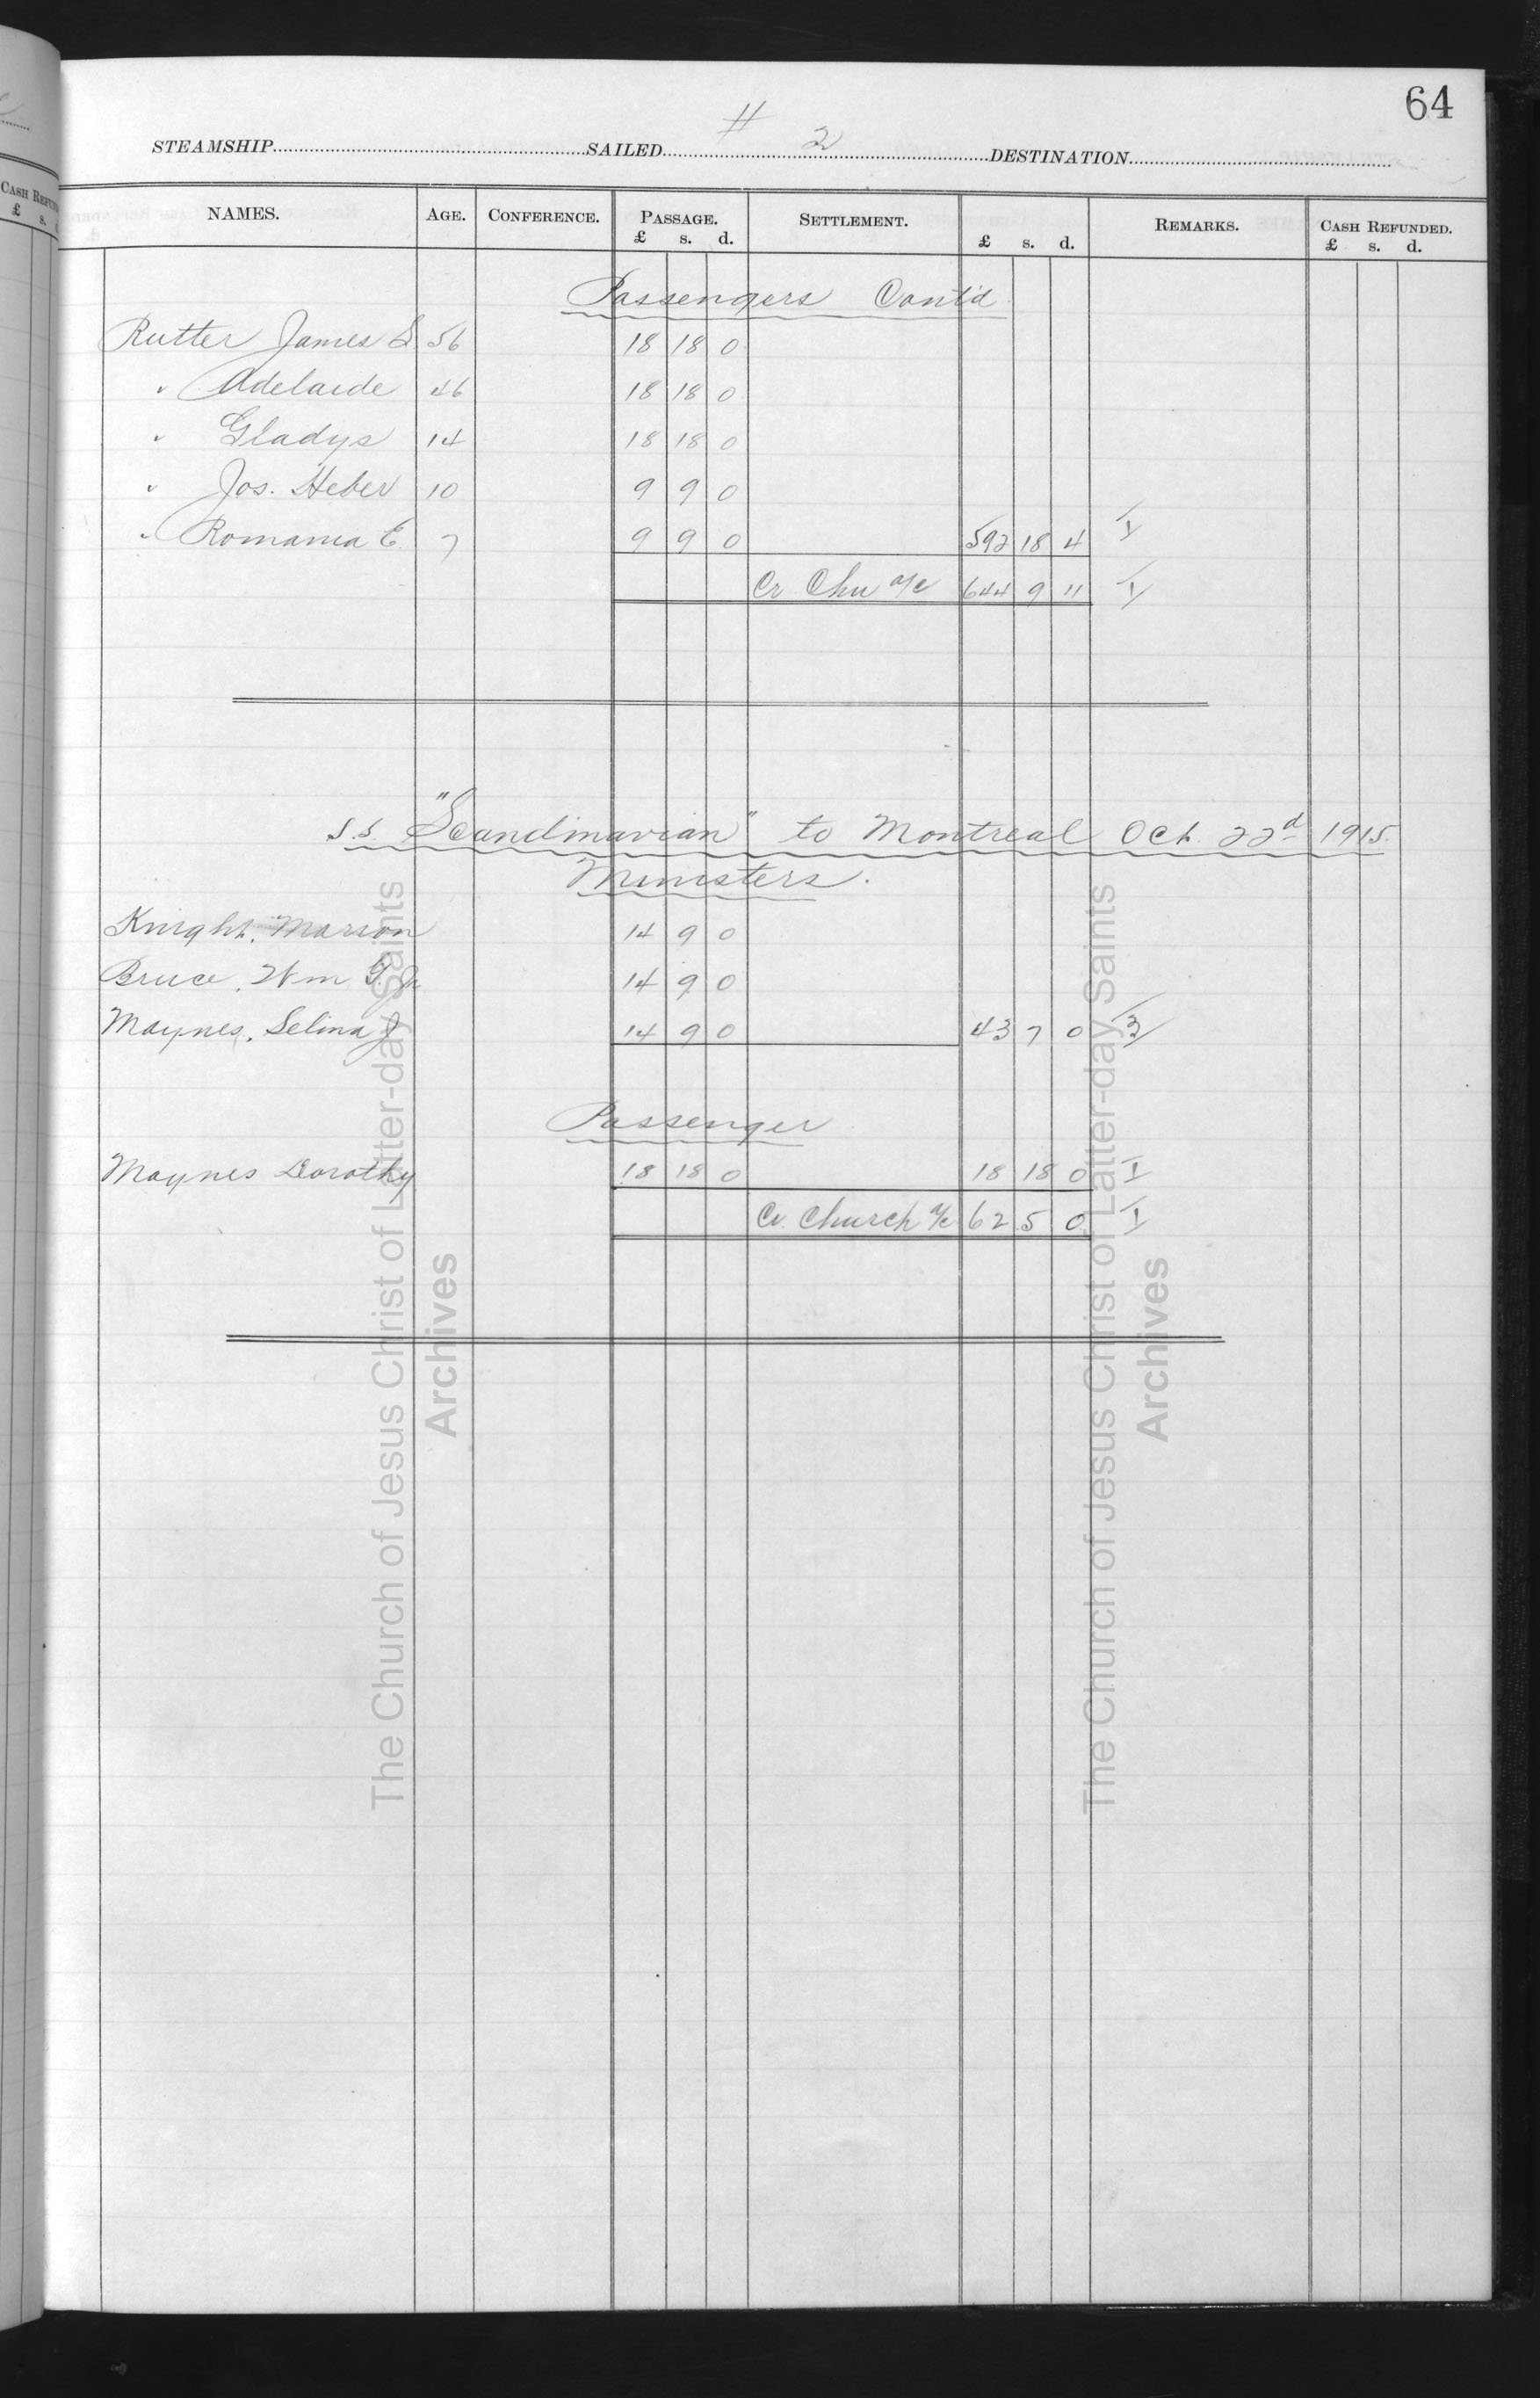 64
# 2
STEAMSHIP SAILED DESTINATION
NAMES. AGE. CONFERENCE. PASSAGE. SETTLEMENT. REMARKS. CASH REFUNDED.
£ s. d. £ s. d. £ s. d.
Passengers Cont'd
Rutter James S 56 18 18 0
" Adelaide 46 18 18 0
" Gladys 14 18 18 0
" Jos. Heber 10 9 9 0
" Romania E 7 9 9 0 592 18 4 I
Cr Chu a/c 644 9 11 I
S.S. "Scandinavian" to Montreal Oct. 22d 1915.
Ministers.
Knight, Marion 14 9 0
Bruce, Wm G. Jr 14 9 0
Maynes, Selina J 14 9 0 43 7 0 3
Passenger
Maynes Dorothy 18 18 0 18 18 0 I
Cr. Church a/c 62 5 0 I
The Church of Jesus Christ of Latter-day Saints
Archives
The Church of Jesus Christ of Latter-day Saints
Archives
CASH REFUN
£ s.